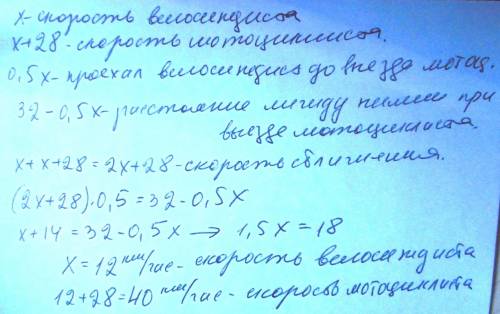 х - скорость велосипедиста
х+28 - скорость мотоциклиста.
0,5х - проехал велосипедист до выезда мотоц.
32 - 0,5х - расстояние между ними при
выезде мотоциклиста.
х + х + 28 = 2х + 28 - скорость сближения.
(2х + 28)·0,5 = 32 - 0,5х
х + 14 = 32 - 0,5х → 1,5х = 18
х = 12 км/час - скорость велосипедиста
12 + 28 = 40 км/час - скорость мотоциклиста